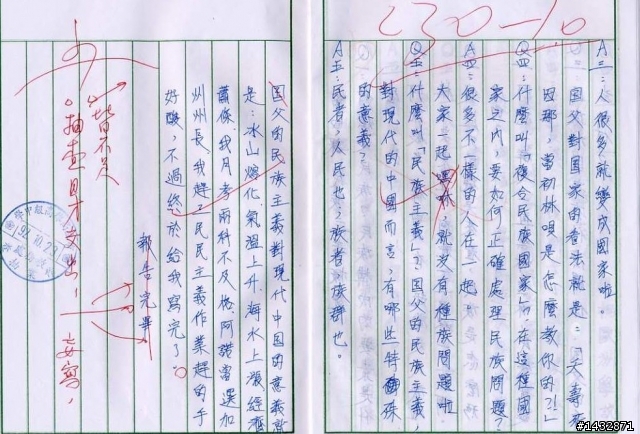 A三:人很多就變成國家啦。
國父對國家的看法就是:「夭壽死
囡那,當初林唄是怎麼教你的?!」
Q四:什麼叫「複合民族國家」?在這種國
家之內,要如何正確處理民族問題?
A四:很多不一樣的人在一起
大家一起嘿咻就沒有種族問題啦
Q五:什麼叫「民族主義」?國父的民族主義,
對現代的中國而言,有哪些特殊
的意義?
A五:民者,人民也,族者,族群也。
國父的民族主義對現代中國的意義就
是:冰山熔化,氣溫上升,海水上漲,經濟
蕭條,我月考兩科不及格,阿諾當選加
州州長,我趕三民主義作業趕的手
好酸,不過終於給我寫完了。
報告完畢
皆不足
。抽查日才交出!
妄寫!
#1432871